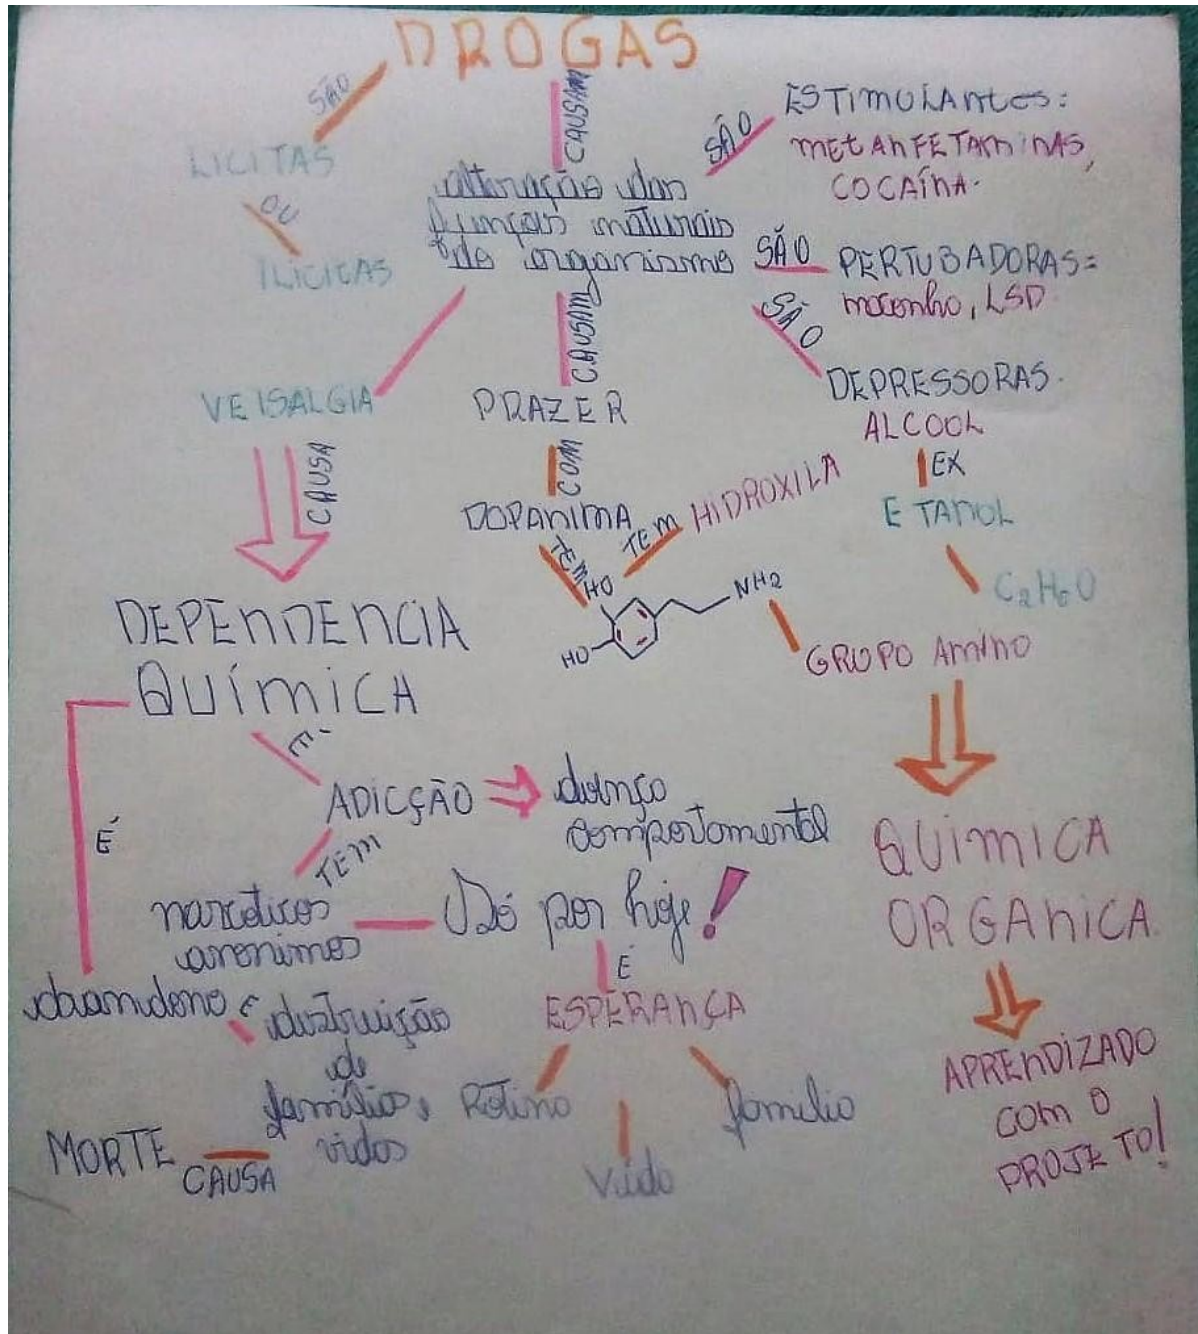 DROGAS
SÃO
LICITAS
OU
ILICITAS
CAUSAM
alteração das
funções naturais
do organismo
SÃO
ESTIMULANTES:
METANFETAMINAS,
COCAÍNA.
SÃO
PERTUBADORAS=
maconha, LSD.
SÃO
DEPRESSORAS.
ALCOOL
EX
ETANOL
C2H6O
VEISALGIA
CAUSA
CAUSAM
PRAZER
COM
DOPANIMA
TEM
TEM
HIDROXILA
HO
HO
NH2
GRUPO AMINO
QUIMICA
ORGANICA.
APRENDIZADO
COM O
PROJETO!
DEPENDENCIA
QUÍMICA
É
ADICÇÃO
doença
comportamental
TEM
narcoticos
anonimos
Só por hoje!
É
ESPERANÇA
Rotina
Vida
família
É
abandono
E
destruição
de
famílias,
vidas
CAUSA
MORTE